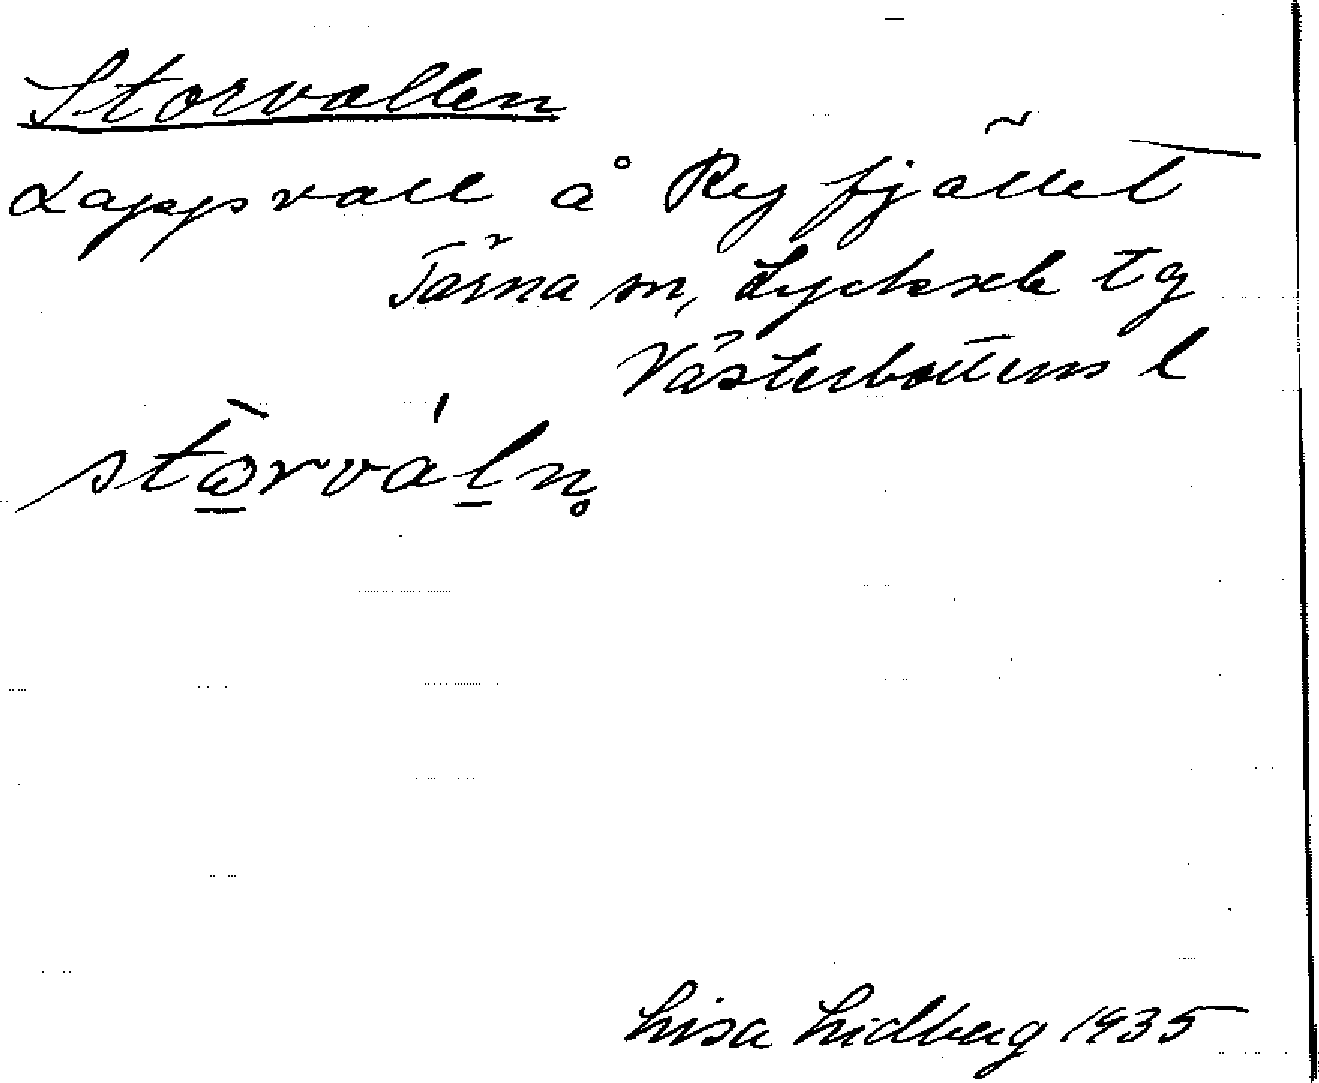 Storvallen
Lappvall å Ryfjället
Tärna sn, Lycksele tg
Västerbottens l
stòrváln̥
Lisa Lidberg 1935